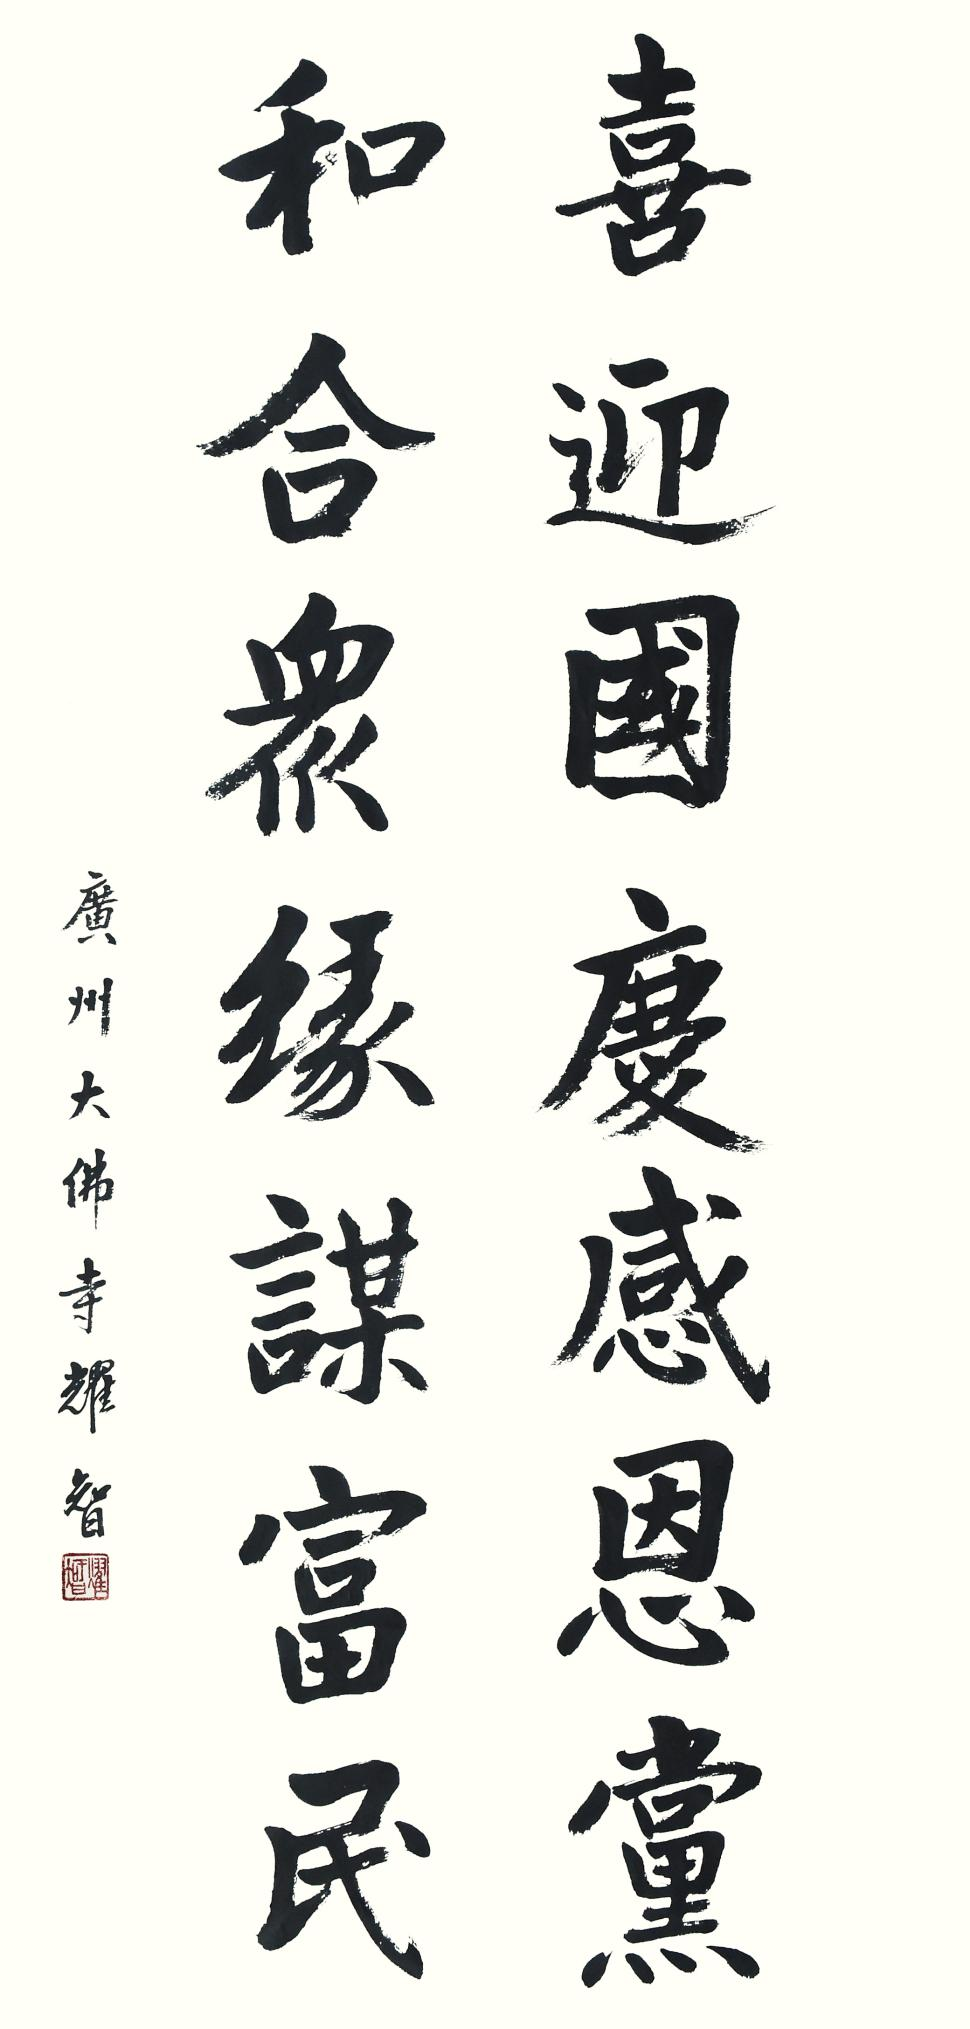 喜迎國慶感恩黨
和合眾緣謀富民
廣州大佛寺耀智
耀智